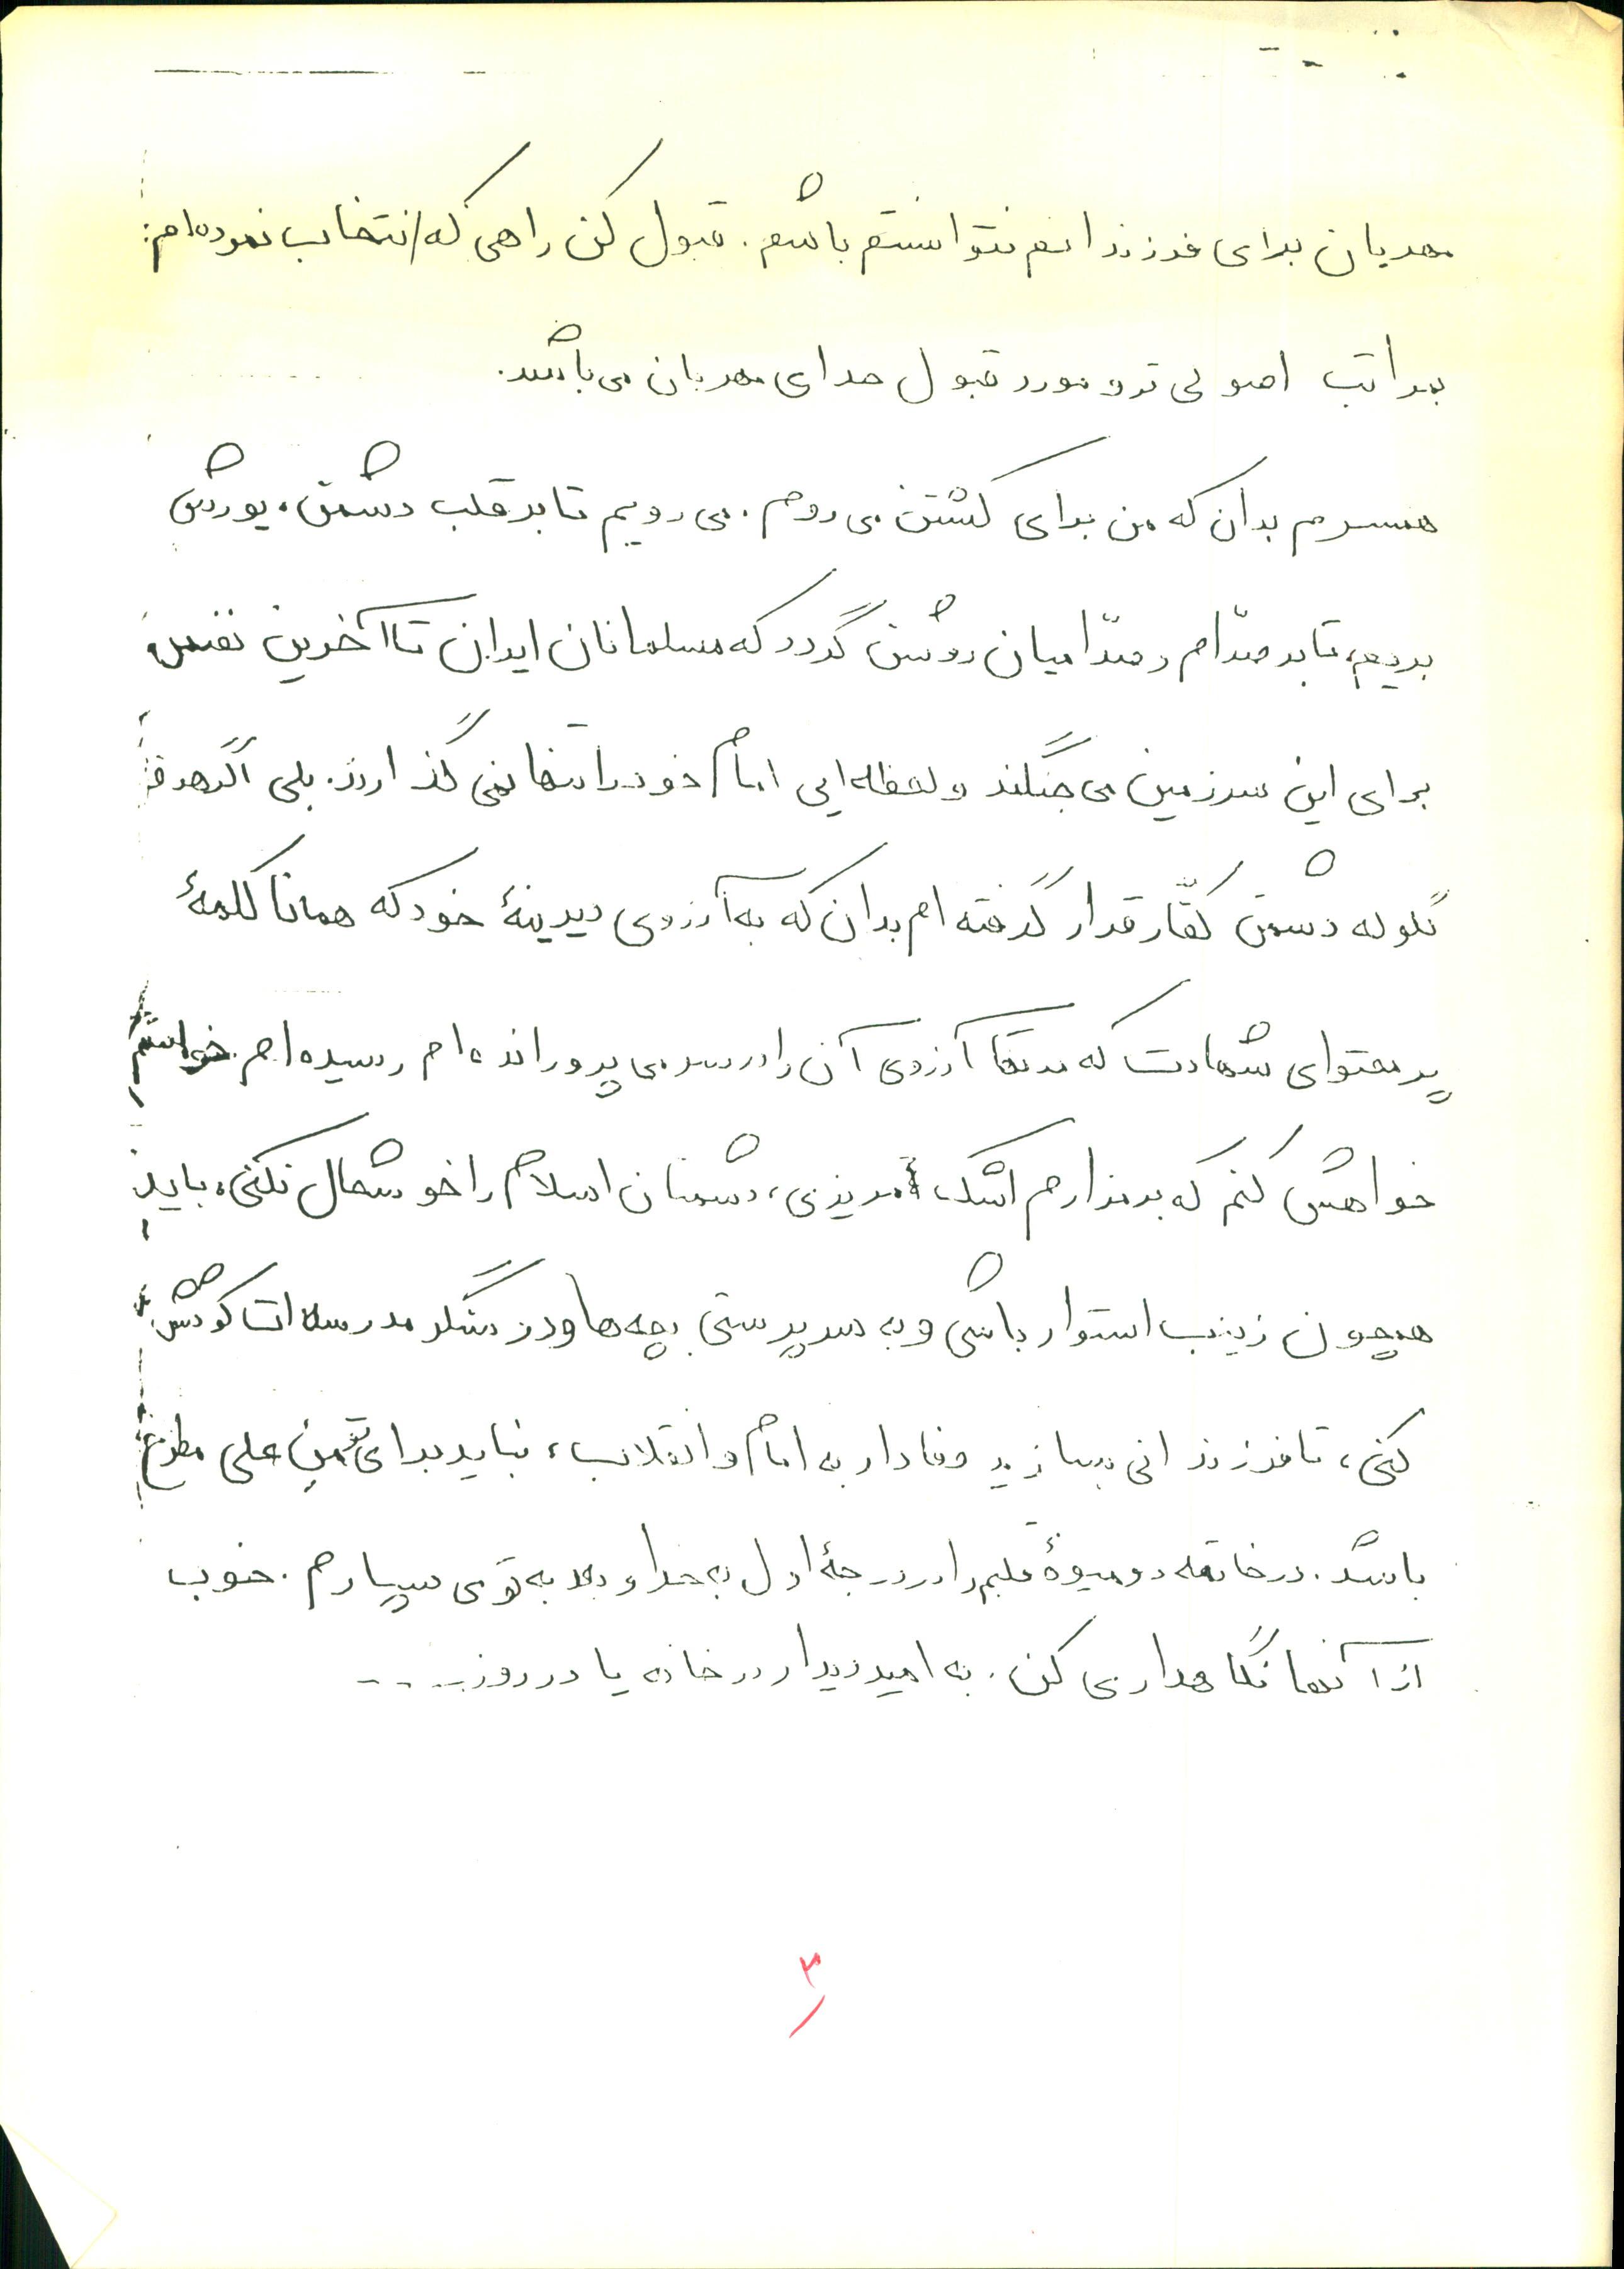 مهربان برای فرزندانم نتوانستم باشم. قبول کن راهی که انتخاب نموده‌ام
بمراتب اصولی‌تر و مورد قبول خدای مهربان می‌باشد.
همسرم بدان که من برای کشتن می‌روم. می‌رویم تا بر قلب دشمن، یورش
بریم، تا بر صدّام و صدّامیان روشن گردد که مسلمانان ایران تا آخرین نفس
برای این سرزمین می‌جنگند و لحظه‌ایی امام خود را تنها نمی‌گذارند. بلی اگر هدف
گلوله دشمن کفّار قرار گرفته‌ام بدان که به آرزوی دیرینهٔ خود که همانا کلمهٔ
پر محتوای شهادت که مدتها آرزوی آن را در سر می‌پرورانده‌ام رسیده‌ام. خواستم
خواهش کنم که بر مزارم اشک نریزی، دشمنان اسلام را خوشحال نکنی، باید
همچون زینب استوار باشی و به سرپرستی بچه‌ها و در سنگر مدرسه‌ات کوشش
کنی، تا فرزندانی بسازید وفادار به امام و انقلاب، نباید برای تو من علی مطرح
باشد. در خاتمه دو میوهٔ قلبم را در درجهٔ اول به خدا و بعد به تو می‌سپارم. خوب
از آنها نگاهداری کن. به امید دیدار در خانه یا در روز ....
۳